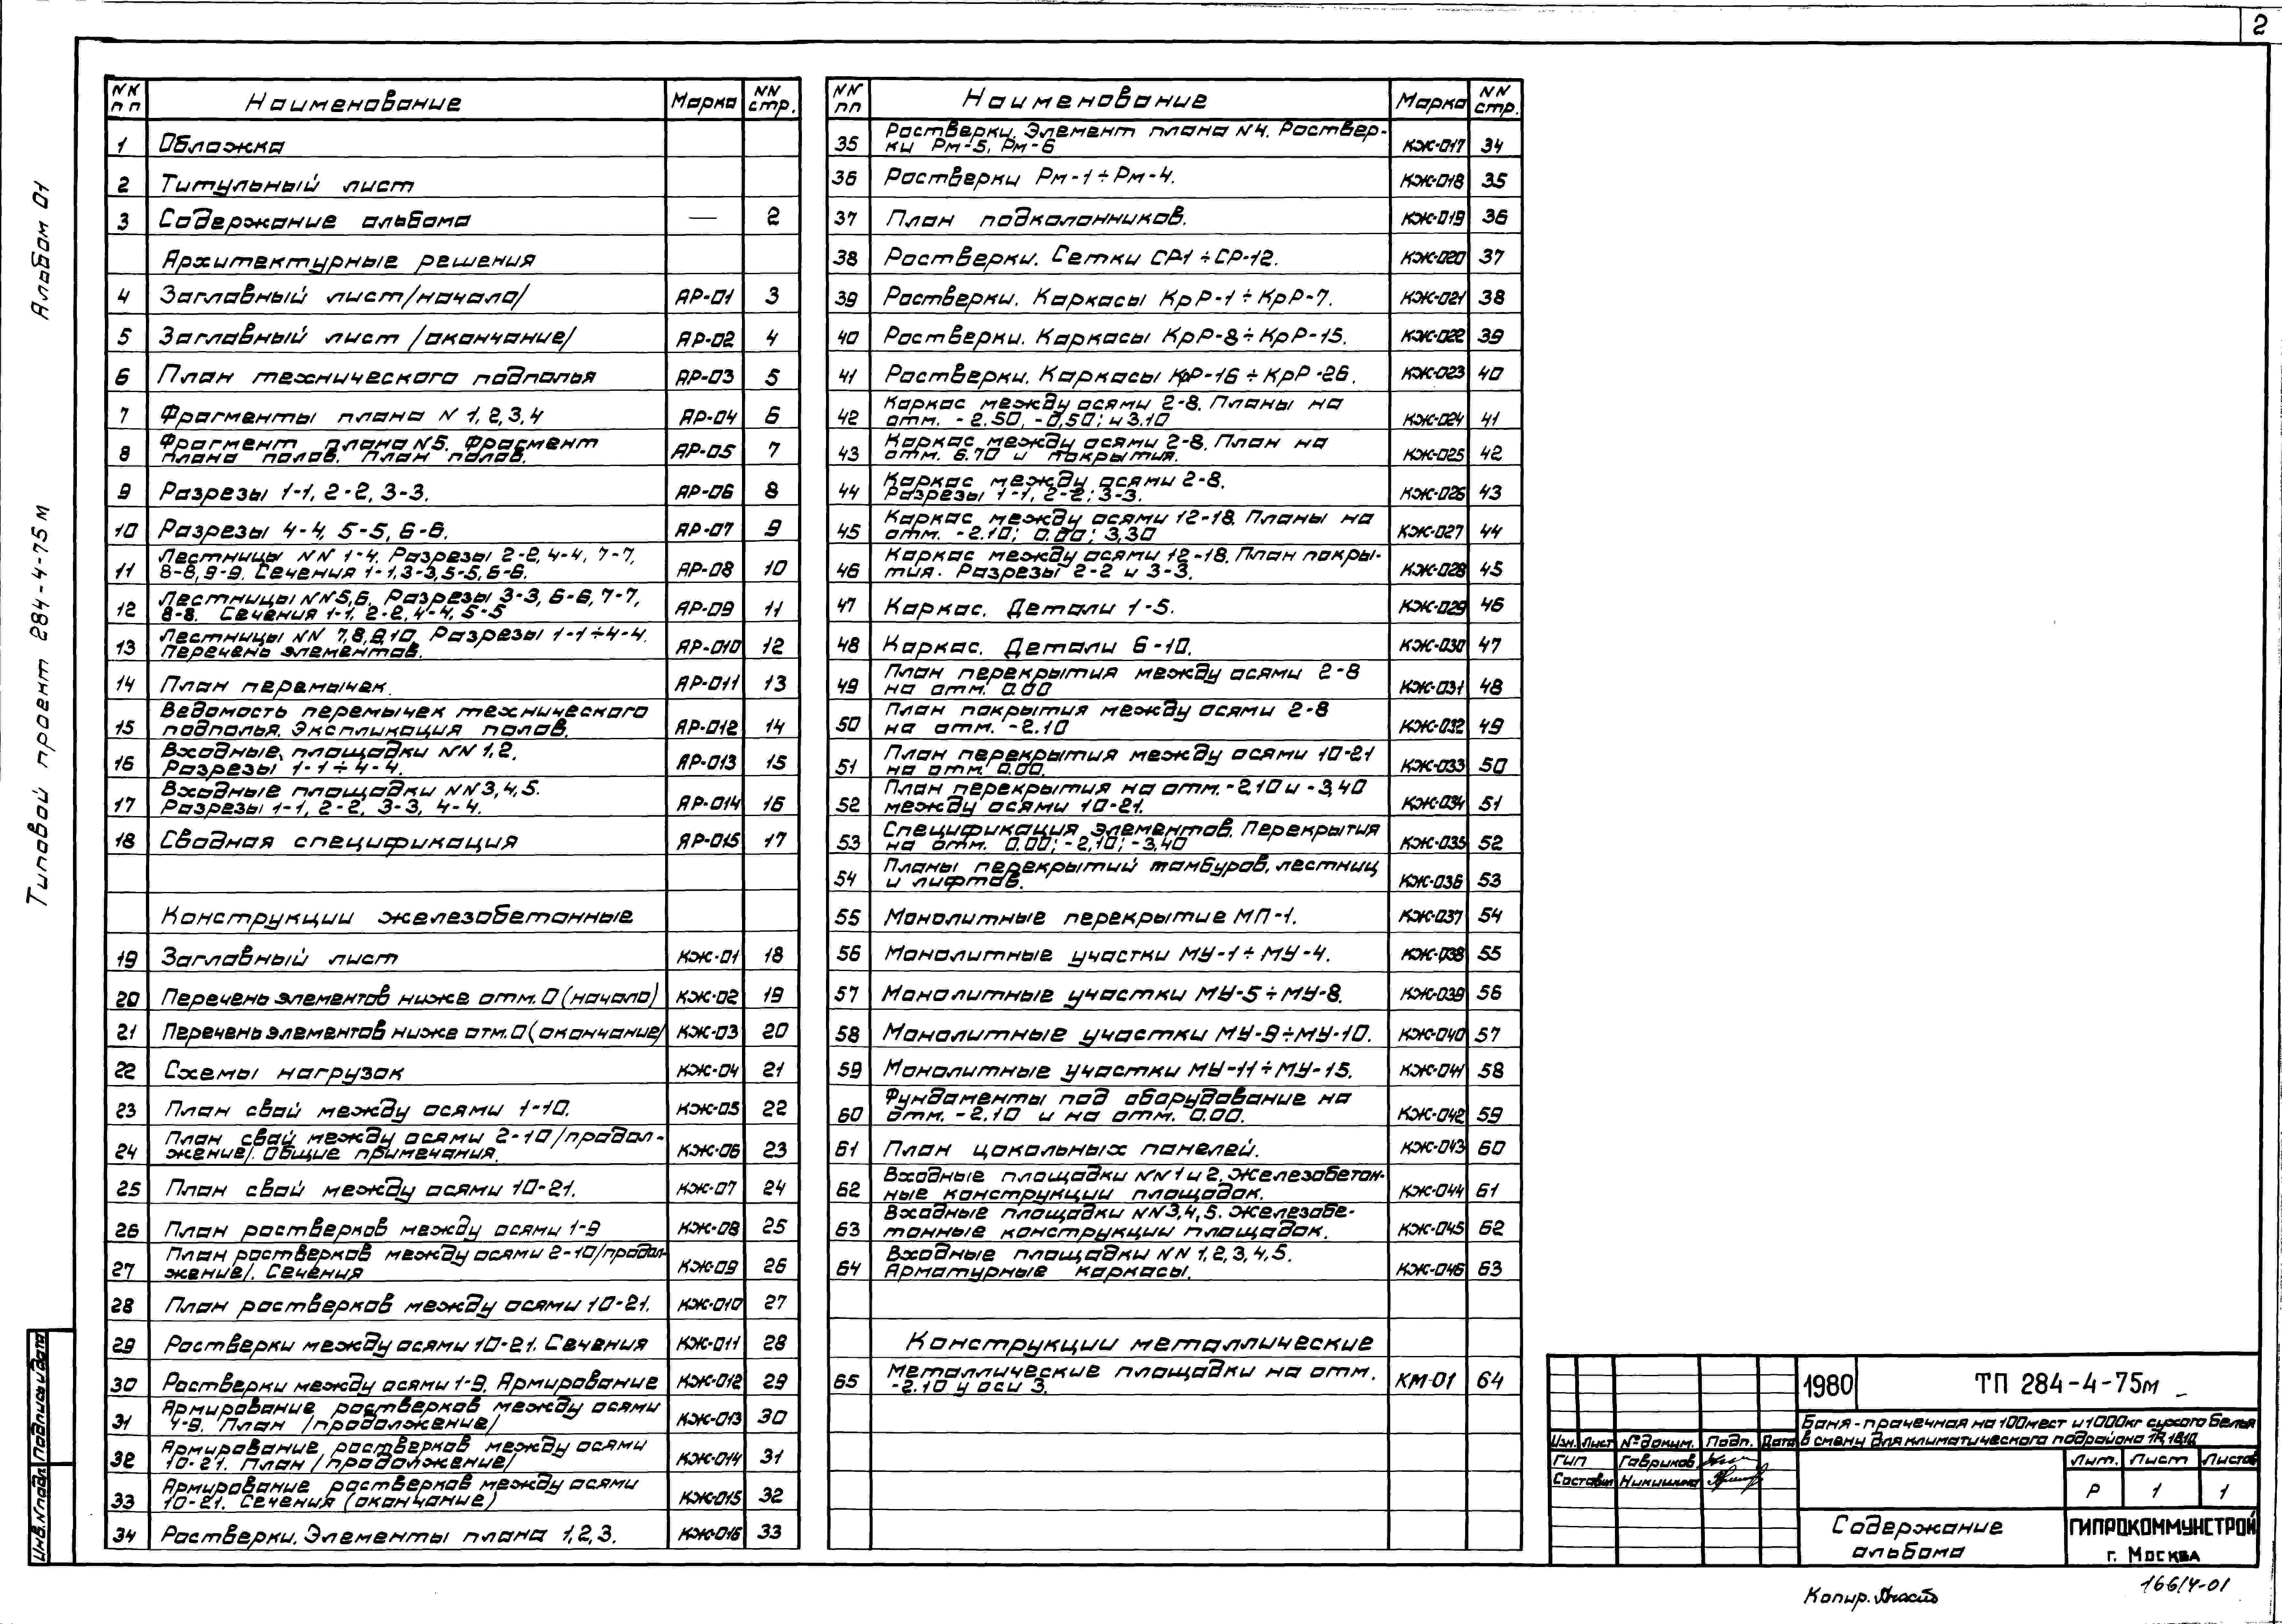 2
Альбом 01
Типовой проект 284-4-75м
Инв.№подл. Подпись и дата
NN пп Наименование Марка NN стр.
1 Обложка
2 Титульный лист
3 Содержание альбома — 2
Архитектурные решения
4 Заглавный лист /начало/ АР-01 3
5 Заглавный лист /окончание/ АР-02 4
6 План технического подполья АР-03 5
7 Фрагменты плана N 1,2,3,4 АР-04 6
8 Фрагмент плана N5. Фрагмент
плана полов. План полов. АР-05 7
9 Разрезы 1-1, 2-2, 3-3. АР-06 8
10 Разрезы 4-4, 5-5, 6-6. АР-07 9
11 Лестницы NN 1-4. Разрезы 2-2, 4-4, 7-7,
8-8, 9-9. Сечения 1-1, 3-3, 5-5, 6-6. АР-08 10
12 Лестницы NN5,6. Разрезы 3-3, 6-6, 7-7,
8-8. Сечения 1-1, 2-2, 4-4, 5-5 АР-09 11
13 Лестницы NN 7,8,9,10. Разрезы 1-1÷4-4.
Перечень элементов. АР-010 12
14 План перемычек. АР-011 13
15 Ведомость перемычек технического
подполья. Экспликация полов. АР-012 14
16 Входные площадки NN 1,2.
Разрезы 1-1÷4-4. АР-013 15
17 Входные площадки NN3,4,5.
Разрезы 1-1, 2-2, 3-3, 4-4. АР-014 16
18 Сводная спецификация АР-015 17
Конструкции железобетонные
19 Заглавный лист КЖ-01 18
20 Перечень элементов ниже отм. 0 (начало) КЖ-02 19
21 Перечень элементов ниже отм. 0 (окончание/ КЖ-03 20
22 Схемы нагрузок КЖ-04 21
23 План свай между осями 1-10. КЖ-05 22
24 План свай между осями 2-10 /продол-
жение/. Общие примечания. КЖ-06 23
25 План свай между осями 10-21. КЖ-07 24
26 План ростверков между осями 1-9 КЖ-08 25
27 План ростверков между осями 2-10 /продол-
жение/. Сечения КЖ-09 26
28 План ростверков между осями 10-21. КЖ-010 27
29 Ростверки между осями 10-21. Сечения КЖ-011 28
30 Ростверки между осями 1-9. Армирование КЖ-012 29
31 Армирование ростверков между осями
4-9. План /продолжение/ КЖ-013 30
32 Армирование ростверков между осями
10-21. План /продолжение/ КЖ-014 31
33 Армирование ростверков между осями
10-21. Сечения (окончание) КЖ-015 32
34 Ростверки. Элементы плана 1,2,3. КЖ-016 33
NN пп Наименование Марка NN стр.
35 Ростверки. Элемент плана N4. Роствер-
ки Рм-5, Рм-6 КЖ-017 34
36 Ростверки Рм-1÷Рм-4. КЖ-018 35
37 План подколонников. КЖ-019 36
38 Ростверки. Сетки СР1÷СР-12. КЖ-020 37
39 Ростверки. Каркасы КрР-1÷КрР-7. КЖ-021 38
40 Ростверки. Каркасы КрР-8÷КрР-15. КЖ-022 39
41 Ростверки. Каркасы КрР-16÷КрР-26. КЖ-023 40
42 Каркас между осями 2-8. Планы на
отм. -2.50, -0,50; и 3.10 КЖ-024 41
43 Каркас между осями 2-8. План на
отм. 6.70 и покрытия. КЖ-025 42
44 Каркас между осями 2-8.
Разрезы 1-1, 2-2; 3-3. КЖ-026 43
45 Каркас между осями 12-18. Планы на
отм. -2.10; 0.00; 3,30 КЖ-027 44
46 Каркас между осями 12-18. План покры-
тия. Разрезы 2-2 и 3-3. КЖ-028 45
47 Каркас. Детали 1-5. КЖ-029 46
48 Каркас. Детали 6-10. КЖ-030 47
49 План перекрытия между осями 2-8
на отм. 0.00 КЖ-031 48
50 План покрытия между осями 2-8
на отм. -2.10 КЖ-032 49
51 План перекрытия между осями 10-21
на отм. 0.00. КЖ-033 50
52 План перекрытия на отм. -2,10 и -3,40
между осями 10-21. КЖ-034 51
53 Спецификация элементов. Перекрытия
на отм. 0.00; -2,10; -3,40 КЖ-035 52
54 Планы перекрытий тамбуров, лестниц
и лифтов. КЖ-036 53
55 Монолитные перекрытие МП-1. КЖ-037 54
56 Монолитные участки МУ-1÷МУ-4. КЖ-038 55
57 Монолитные участки МУ-5÷МУ-8. КЖ-039 56
58 Монолитные участки МУ-9÷МУ-10. КЖ-040 57
59 Монолитные участки МУ-11÷МУ-15. КЖ-041 58
60 Фундаменты под оборудование на
отм. -2.10 и на отм. 0.00. КЖ-042 59
61 План цокольных панелей. КЖ-043 60
62 Входные площадки NN 1 и 2. Железобетон-
ные конструкции площадок. КЖ-044 61
63 Входные площадки NN3,4,5. Железобе-
тонные конструкции площадок. КЖ-045 62
64 Входные площадки NN 1,2,3,4,5.
Арматурные каркасы. КЖ-046 63
Конструкции металлические
65 Металлические площадки на отм.
-2.10 у оси 3. КМ-01 64
1980 ТП 284-4-75м
Баня-прачечная на 100 мест и 1000кг сухого белья
в смену для климатического подрайона
Изм. Лист № докум. Подп. Дата
ГИП Гавриков
Составил Никишина
Лит. Лист Листов
Р 1 1
Содержание
альбома
ГИПРОКОММУНСТРОЙ
г. Москва
Копир.
16614-01